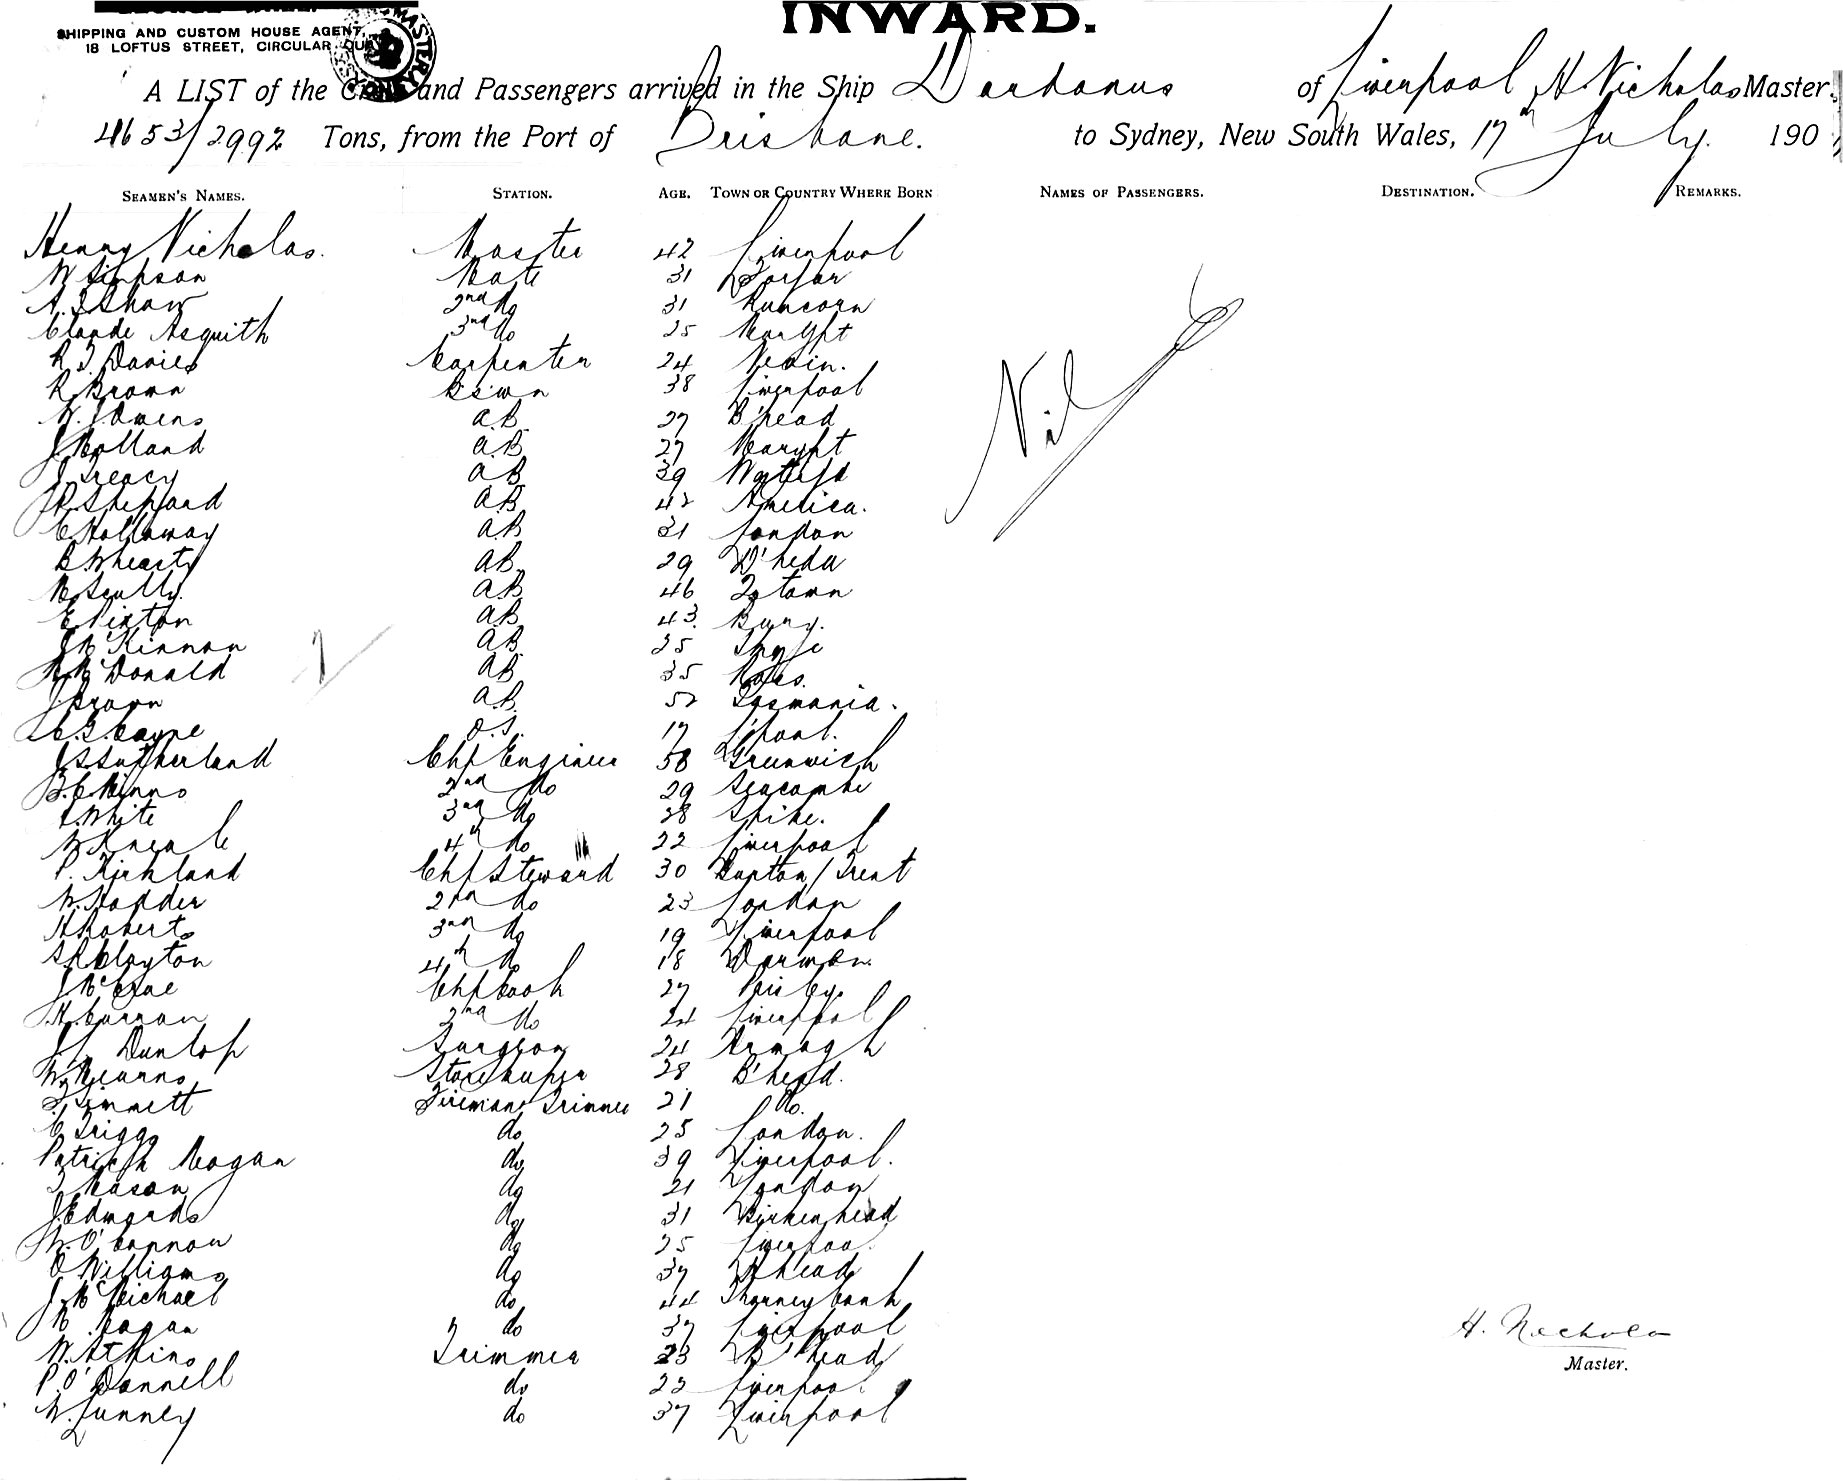 INWARD.
SHIPPING AND CUSTOM HOUSE AGENT,
18 LOFTUS STREET, CIRCULAR QUAY
A LIST of the Crew and Passengers arrived in the Ship Dardanus of Liverpool H Nicholas Master.
4653/2992 Tons, from the Port of Brisbane. to Sydney, New South Wales, 17th July. 190
SEAMEN'S NAMES. STATION. AGE. TOWN OR COUNTRY WHERE BORN NAMES OF PASSENGERS. DESTINATION. REMARKS.
Henry Nicholas. Master 42 Liverpool
W Simpson Mate 31 Forfar
A. Shaw 2nd do 31 Runcorn
Claude Asquith 3rd do 25 Marypt
R J Davies Carpenter 24 Nevin.
R Brown Bswn 38 Liverpool
W. J Owens a.B. 27 B'head
Nil
J Holland a.B. 27 Marypt
J Treacy aB 39 Watrfd
Sheppard aB 42 America.
C Holloway a.B. 31 London
B Whearty aB. 29 D'heda
M Scully. a.B. 46 Qtown
E Nixton a.B. 43. Bury.
J McKinnon a.B. 25 Skye
McDonald aB 35
J Brown a.B. 52 Tasmania.
Cayne O.S. 17 L'pool.
J S Sutherland Chf Engineer 58 Greenwich
2nd do 29 Seacombe
White 3rd do 28
W Kneale 4th do 22 Liverpool
P. Kirkland Chf Steward 30 Burton/Trent
W. Hodder 2nd do 23 London
H Roberts 3rd do 19 Liverpool
Clayton 4th do 18
J McCrae Chf Cook 27
H. Curran 2nd do 24 Liverpool
Dunlop Surgeon 24 Armagh
W. Kearns Storekeeper 28 B'head.
Fireman & Trimmer 21 do.
C Triggs do 25 London.
Patrick Hogan do 39 Liverpool.
Mason do 21 London
J Edwards do 31 Birkenhead
O'Connor do 25 Liverpool
O Williams do 37 B'head
J. McMichael do 44 Thorneybank
Hogan do 37 Liverpool
W. Atkins Trimmer 23 B'head
P. O'Donnell do 22 Liverpool
W. Lunney do 37 Liverpool
H. Nicholas
Master.